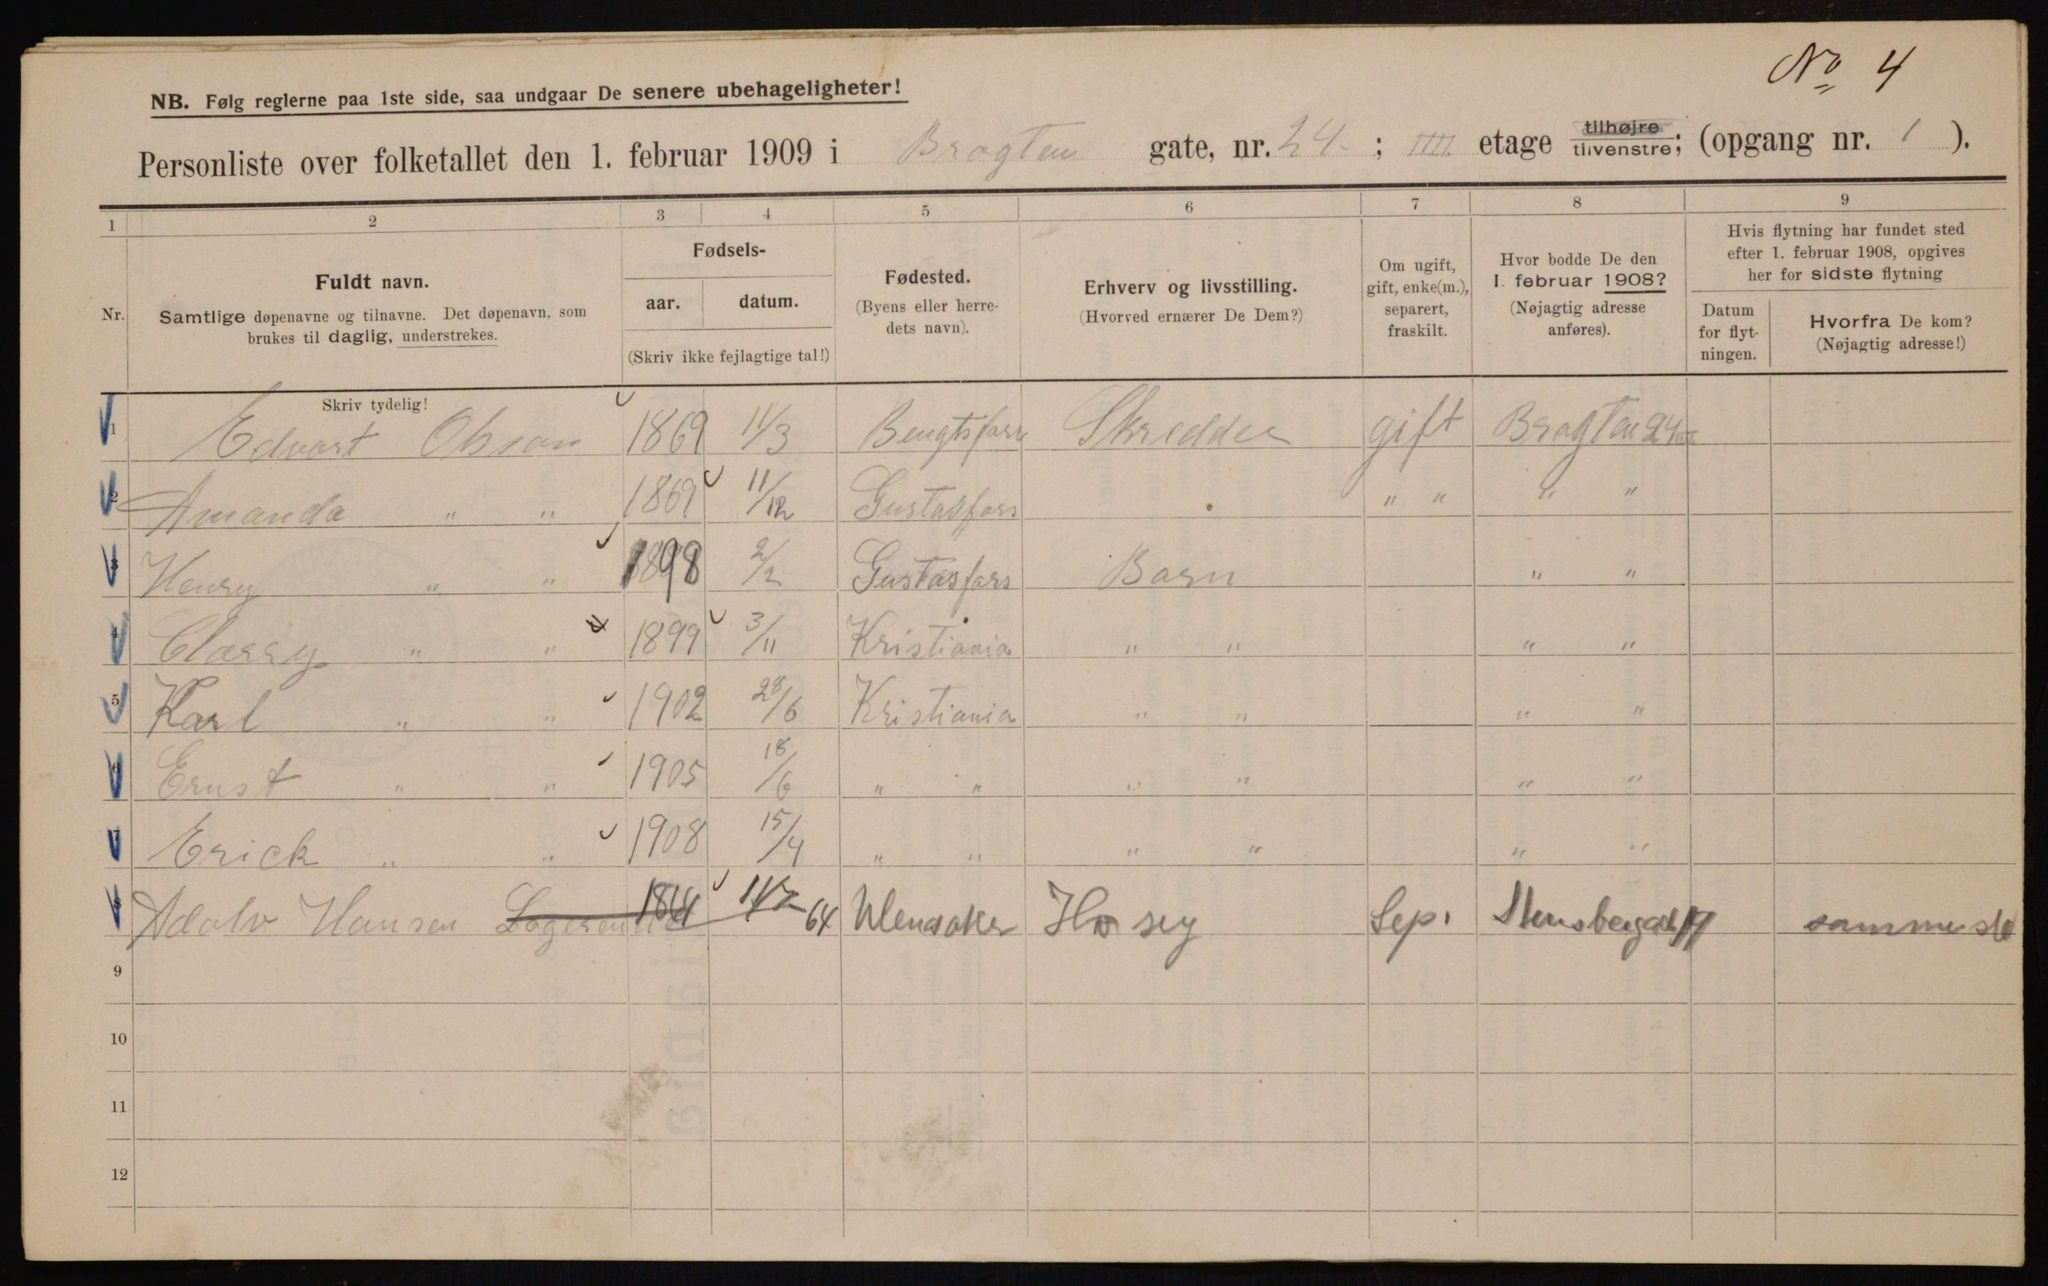 No 4
NB. Følg reglerne paa 1ste side, saa undgaar De senere ubehageligheter!
Personliste over folketallet den 1. februar 1909 i Brogten gate, nr. 24. ; IIII. etage tilhøjre tilvenstre; (opgang nr. 1 ).
1 2 3 4 5 6 7 8 9
Nr.
Fuldt navn.
Samtlige døpenavne og tilnavne. Det døpenavn, som
brukes til daglig, understrekes.
Skriv tydelig!
Fødsels-
aar. datum.
(Skriv ikke fejlagtige tal!)
Fødested.
(Byens eller herre-
dets navn).
Erhverv og livsstilling.
(Hvorved ernærer De Dem?)
Om ugift,
gift, enke(m.),
separert,
fraskilt.
Hvor bodde De den
1. februar 1908?
(Nøjagtig adresse
anføres).
Hvis flytning har fundet sted
efter 1. februar 1908, opgives
her for sidste flytning
Datum
for flyt-
ningen.
Hvorfra De kom?
(Nøjagtig adresse!)
1 Edvart Olsson 1869 11/3 Bengtsfors Skredder gift Brogten 24
2 Amanda " " 1869 11/12 Gustasfors " " " "
3 Henry " " 1898 2/2 Gustasfors Barn " "
4 Clarry " " 1899 3/11 Kristiania " " " "
5 Karl " " 1902 28/6 Kristiania " " " "
6 Ernst " " 1905 18/6 " " " " " "
7 Erick " " 1908 15/4 " " " " " "
8 Adolv Hansen 1864 64 Sep. sammested
9
10
11
12